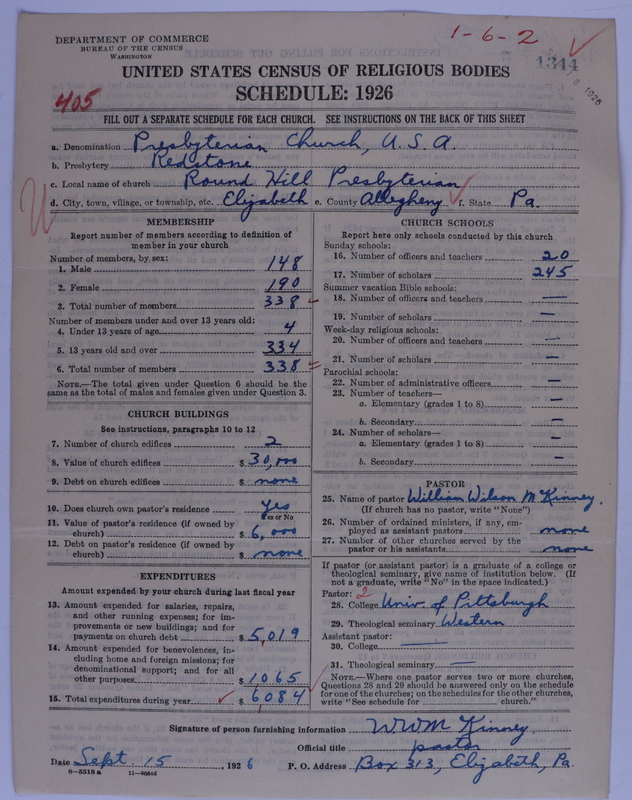 DEPARTMENT OF COMMERCE
BUREAU OF THE CENSUS
WASHINGTON
1-6-2
1344
1926
UNITED STATES CENSUS OF RELIGIOUS BODIES
SCHEDULE: 1926
405
FILL OUT A SEPARATE SCHEDULE FOR EACH CHURCH. SEE INSTRUCTIONS ON THE BACK OF THIS SHEET
a. Denomination Presbyterian Church, U.S.A.
b. Presbytery Redstone
c. Local name of church Round Hill Presbyterian
d. City, town, village, or township, etc. Elizabeth e. County Allegheny f. State Pa.
MEMBERSHIP
Report number of members according to definition of
member in your church
Number of members, by sex:
1. Male 148
2. Female 190
3. Total number of members 338
Number of members under and over 13 years old:
4. Under 13 years of age 4
5. 13 years old and over 334
6. Total number of members 338
NOTE.—The total given under Question 6 should be the
same as the total of males and females given under Question 3.
CHURCH BUILDINGS
See instructions, paragraphs 10 to 12
7. Number of church edifices 2
8. Value of church edifices $ 30,000
9. Debt on church edifices $ none
10. Does church own pastor's residence yes
Yes or No
11. Value of pastor's residence (if owned by
church) $ 6,000
12. Debt on pastor's residence (if owned by
church) $ none
EXPENDITURES
Amount expended by your church during last fiscal year
13. Amount expended for salaries, repairs,
and other running expenses; for im-
provements or new buildings; and for
payments on church debt $ 5,019
14. Amount expended for benevolences, in-
cluding home and foreign missions; for
denominational support; and for all
other purposes $ 1065
15. Total expenditures during year $ 6084
CHURCH SCHOOLS
Report here only schools conducted by this church
Sunday schools:
16. Number of officers and teachers 20
17. Number of scholars 245
Summer vacation Bible schools:
18. Number of officers and teachers —
19. Number of scholars —
Week-day religious schools:
20. Number of officers and teachers —
21. Number of scholars —
Parochial schools:
22. Number of administrative officers —
23. Number of teachers—
a. Elementary (grades 1 to 8) —
b. Secondary —
24. Number of scholars—
a. Elementary (grades 1 to 8) —
b. Secondary —
PASTOR
25. Name of pastor William Wilson McKinney.
(If church has no pastor, write "None")
26. Number of ordained ministers, if any, em-
ployed as assistant pastors none
27. Number of other churches served by the
pastor or his assistants none
If pastor (or assistant pastor) is a graduate of a college or
theological seminary, give name of institution below. (If
not a graduate, write "No" in the space indicated.)
Pastor: 2
28. College Univ. of Pittsburgh
29. Theological seminary Western
Assistant pastor:
30. College —
31. Theological seminary —
NOTE.—Where one pastor serves two or more churches,
Questions 28 and 29 should be answered only on the schedule
for one of the churches; on the schedules for the other churches,
write "See schedule for church."
Signature of person furnishing information WWMcKinney
Official title pastor
Date Sept. 15, 1926 P. O. Address Box 313, Elizabeth, Pa.
8-5518a